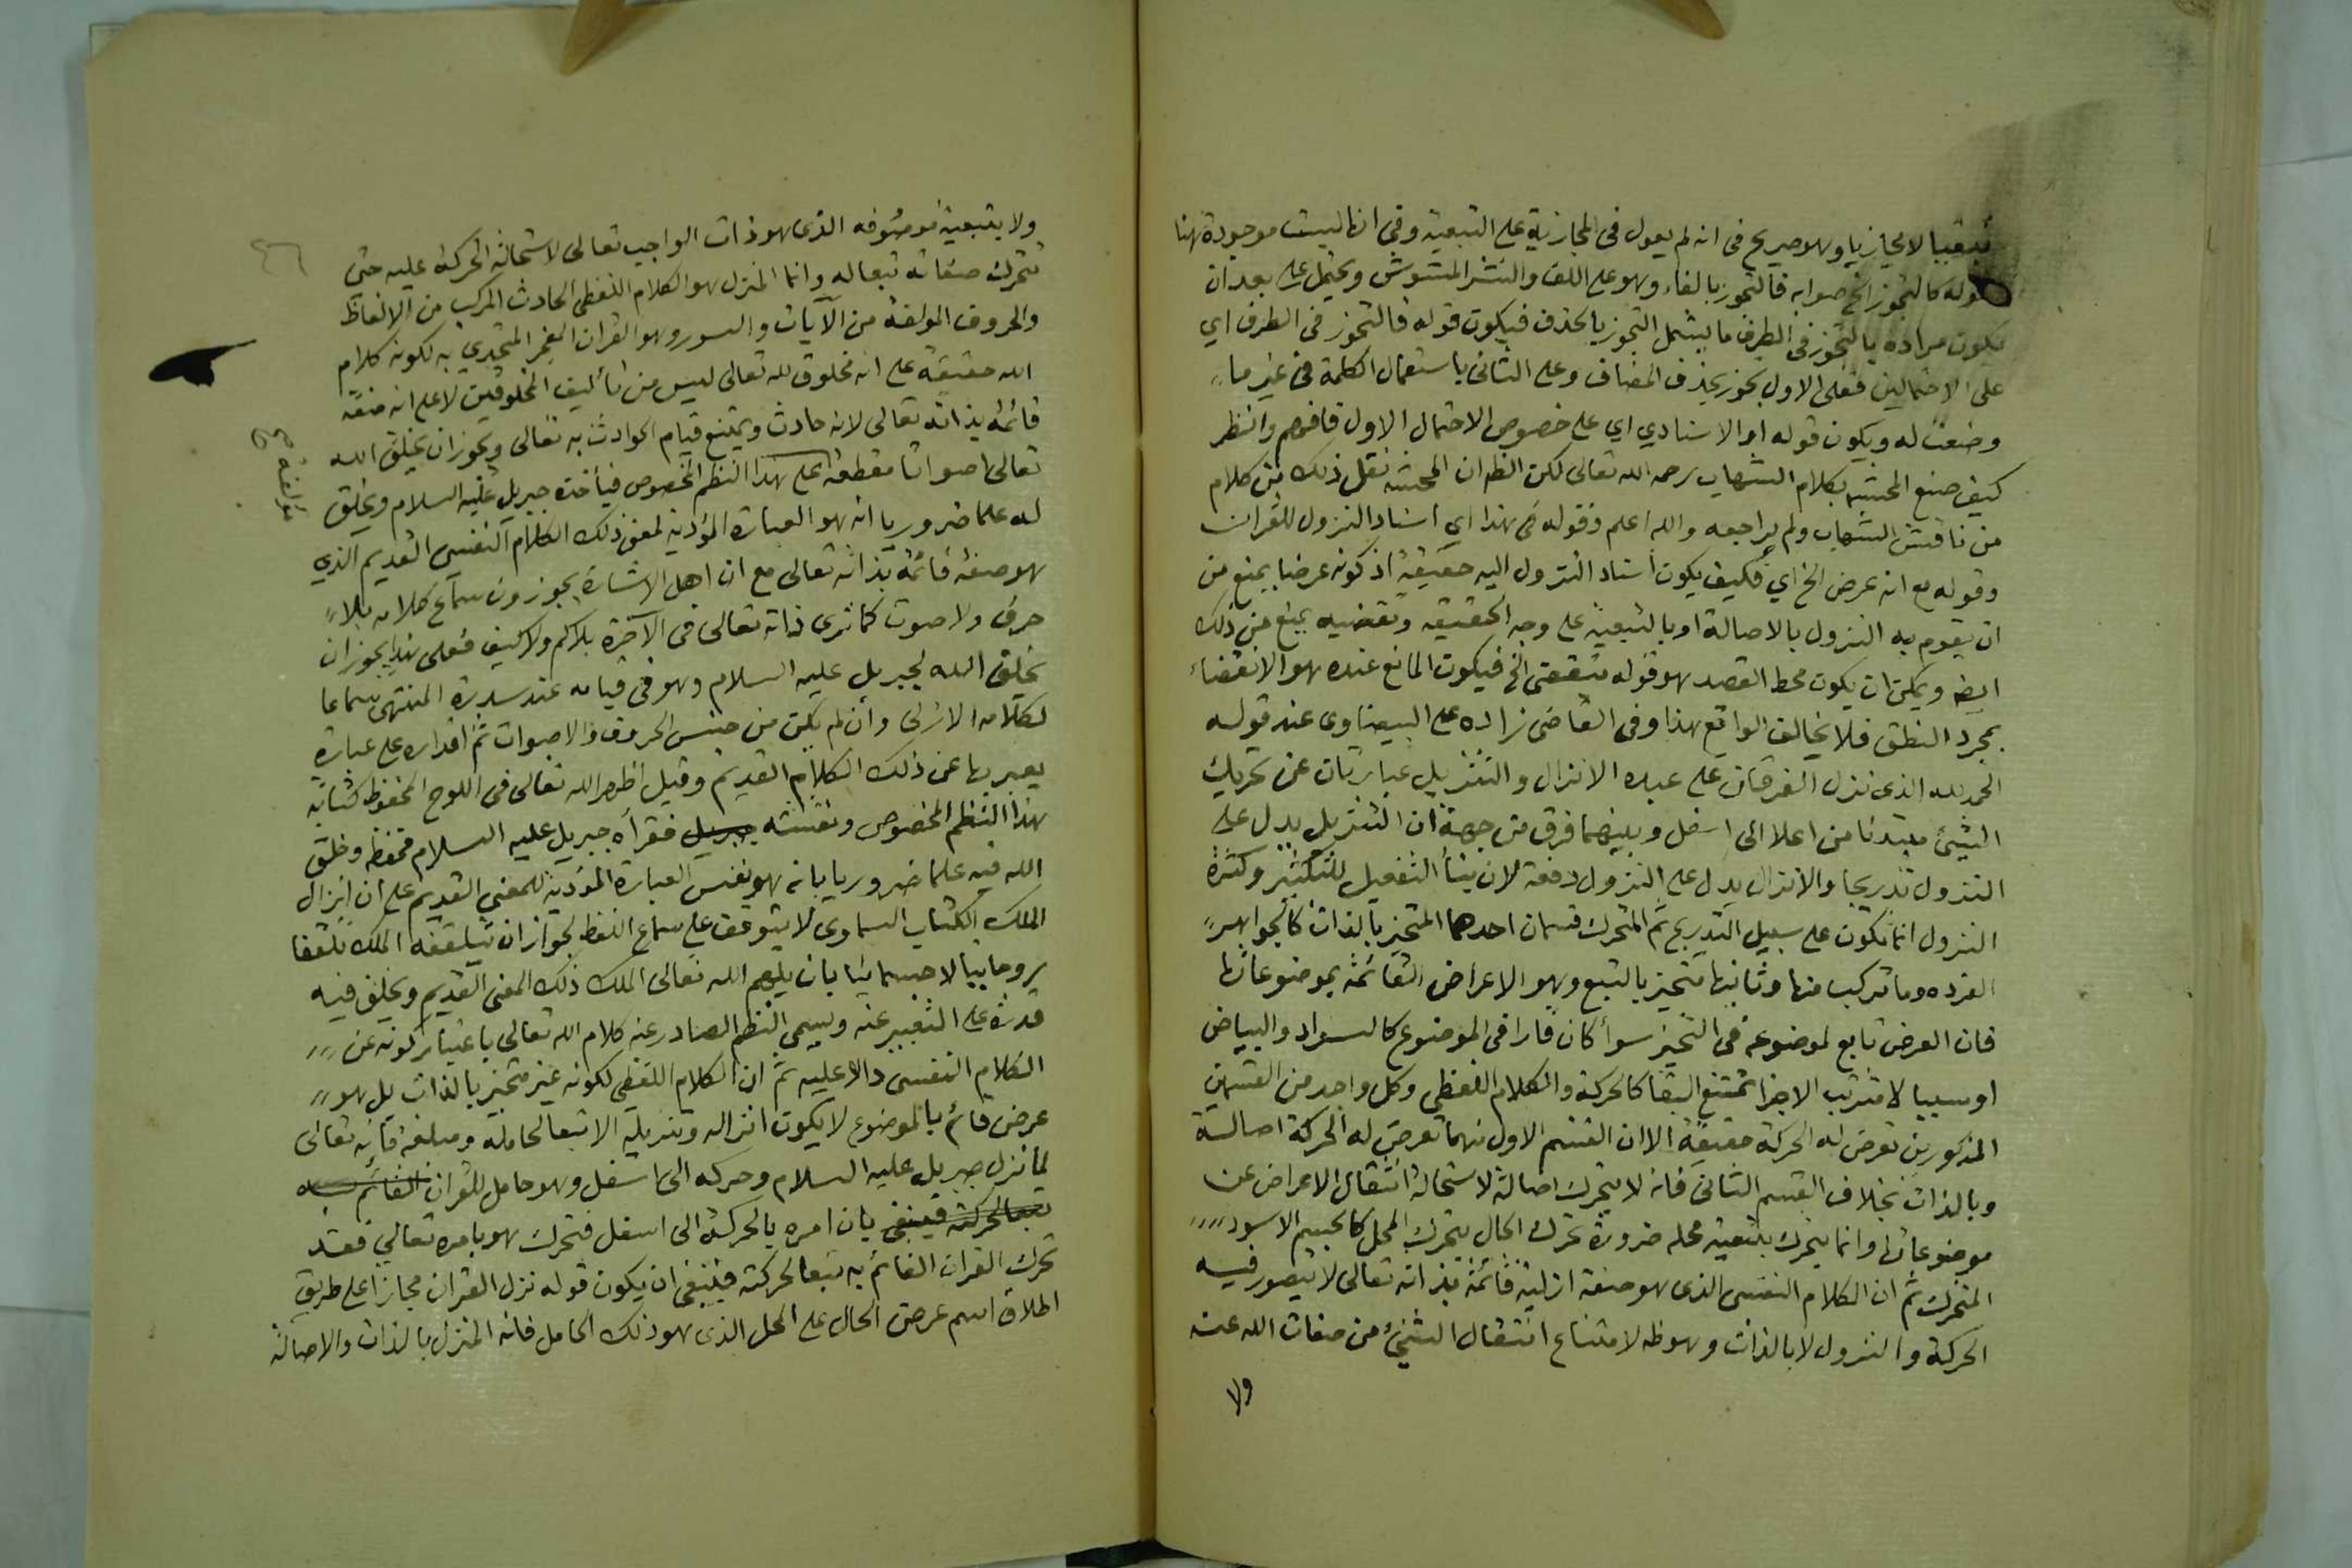 تبعيا لا مجازيا وهو صريح في انه لم يعول في المجازية على التبعية وفي انها ليست موجودة هنا
قوله كالتجوز الخ صوابه فالتجوز بالفاء وهو على اللف والنشر المشوش ويحتمل على بعد ان
يكون مراده بالتجوز في الطرف ما يشمل التجوز بالحذف فيكون قوله فالتجوز في الطرف اي
على الاحتمالين فعلى الاول بجوز بحذف المضاف وعلى الثاني باستعمال الكلمة في غير ما
وضعت له ويكون قوله او الاسنادي اي على خصوص الاحتمال الاول فافهم وانظر
كيف صنع المحشي بكلام الشهاب رحمه الله تعالى لكن الظ ان المحشي نقل ذلك من كلام
من ناقش الشهاب ولم يراجعه والله اعلم وقوله في هذا اي اسناد النزول للقران
وقوله مع انه عرض الخ اي فكيف يكون اسناد النزول اليه حقيقة اذ كونه عرضا يمنع من
ان يقوم به النزول بالاصالة او بالتبعية على وجه الحقيقة وتقضيه يمنع من ذلك
ايضا ويمكن ان يكون محط القصد هو قوله ينقضي الخ فيكون المانع عنده هو الانقضاء
بمجرد النطق فلا يخالف الواقع هذا وفي القاضي زاده على البيضاوي عند قوله
الحمد لله الذي نزل الفرقان على عبده الانزال والتنزيل عبارتان عن تحريك
الشيئ مبتدئا من اعلا الى اسفل وبينهما فرق من جهة ان التنزيل يدل على
النزول تدريجا والانزال يدل على النزول دفعة لان بناء التفعيل للتكثير وكثرة
النزول انما تكون على سبيل التدريج ثم المتحرك قسمان احدهما المتحيز بالذات كالجواهر
الفرده وما تركب منها وثانيها متحيز بالتبع وهو الاعراض القائمة بموضوعاتها
فان العرض تابع لموضوعه في التحيز سوأ كان قارا في الموضوع كالسواد والبياض
او سيالا مترتب الاجزا ممتنع البقا كالحركة والكلام اللفظي وكل واحد من القسمين
المذكورين تعرض له الحركة حقيقة الا ان القسم الاول منهما تعرض له الحركة اصالة
وبالذات بخلاف القسم الثاني فانه لا يتحرك اصالة لاستحالة انتقال الاعراض عن
موضوعاتها وانما يتحرك بتبعية محله ضرورة تحرك الحال بتحرك المحل كالجسم الاسود
المتحرك ثم ان الكلام النفسي الذي هو صفة ازلية قائمة بذاته تعالى لا يتصور فيه
الحركة والنزول لا بالذات وهو ظ لامتناع انتقال الشيئ من صفات الله عنه
ولا
ولا بتبعية موصوفه الذي هو ذات الواجب تعالى لاستحالة الحركة عليه حتى
تتحرك صفاته تبعا له وانما المنزل هو الكلام اللفظي الحادث المركب من الالفاظ
والحروف المولفة من الآيات والسور وهو القران المعجز المتحدي به لكونه كلام
الله حقيقة على انه مخلوق لله تعالى ليس من تأليف المخلوقين لا على انه صفة
قائمة بذاته تعالى لانه حادث ويمتنع قيام الحوادث به تعالى ويجوز ان يخلق الله
تعالى اصواتا مقطعة على هذا النظم المخصوص فيأخذه جبريل عليه السلام ويخلق
له علما ضروريا انه هو العبارة المؤدية لمعنى ذلك الكلام النفسي القديم الذي
هو صفة قائمة بذاته تعالى مع ان اهل الاشاره يجوزون سماع كلامه بلا
حرف ولا صوت كما ترى ذاته تعالى في الآخرة بلا كم ولا كيف فعلى هذا يجوز ان
يخلق الله لجبريل عليه السلام وهو في قيامه عند سدرة المنتهى سماعا
لكلامه الازلي وان لم يكن من جنس الحروف والاصوات ثم اقداره على عبارة
يعبر بها عن ذلك الكلام القديم وقيل اظهر الله تعالى في اللوح المحفوظ كتابة
هذا النظم المخصوص ونقشه جبريل فقرأه جبريل عليه السلام فحفظه وخلق
الله فيه علما ضروريا بانه هو نفس العبارة المؤدية للمعنى القديم على ان انزال
الملك الكتاب السماوي لا يتوقف على سماع اللفظ لجواز ان يتلقفه الملك تلقفا
روحانيا لا جسمانيا بان يلهم الله تعالى الملك ذلك المعنى القديم ويخلق فيه
قدرة على التعبير عنه ويسمى النظم الصادر عنه كلام الله تعالى باعتبار كونه عن
الكلام النفسي دالا عليه ثم ان الكلام اللفظي لكونه غير متحيز بالذات بل هو
عرض قائم بالموضوع لا يكون انزاله وتنزيله الا تبعا لحامله ومبلغه فانه تعالى
لما نزل جبريل عليه السلام وحركه الى اسفل وهو حامل للقران القائم به
تبعا لحركته فينبغي بان امره بالحركة الى اسفل فتحرك هو بامره تعالى فقد
تحرك القران القائم به تبعا لحركته فينبغي ان يكون قوله نزل القران مجازا على طريق
اطلاق اسم عرض الحال على المحل الذي هو ذلك الحامل فانه المنزل بالذات والاصالة